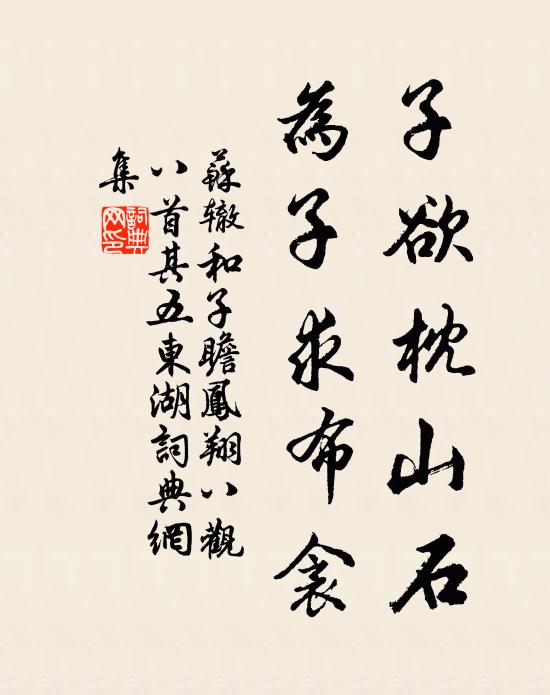 子欲枕山石
為子求布衾
蘇轍和子瞻鳳翔八觀
八首其五東湖詞典網
集
詞典网印